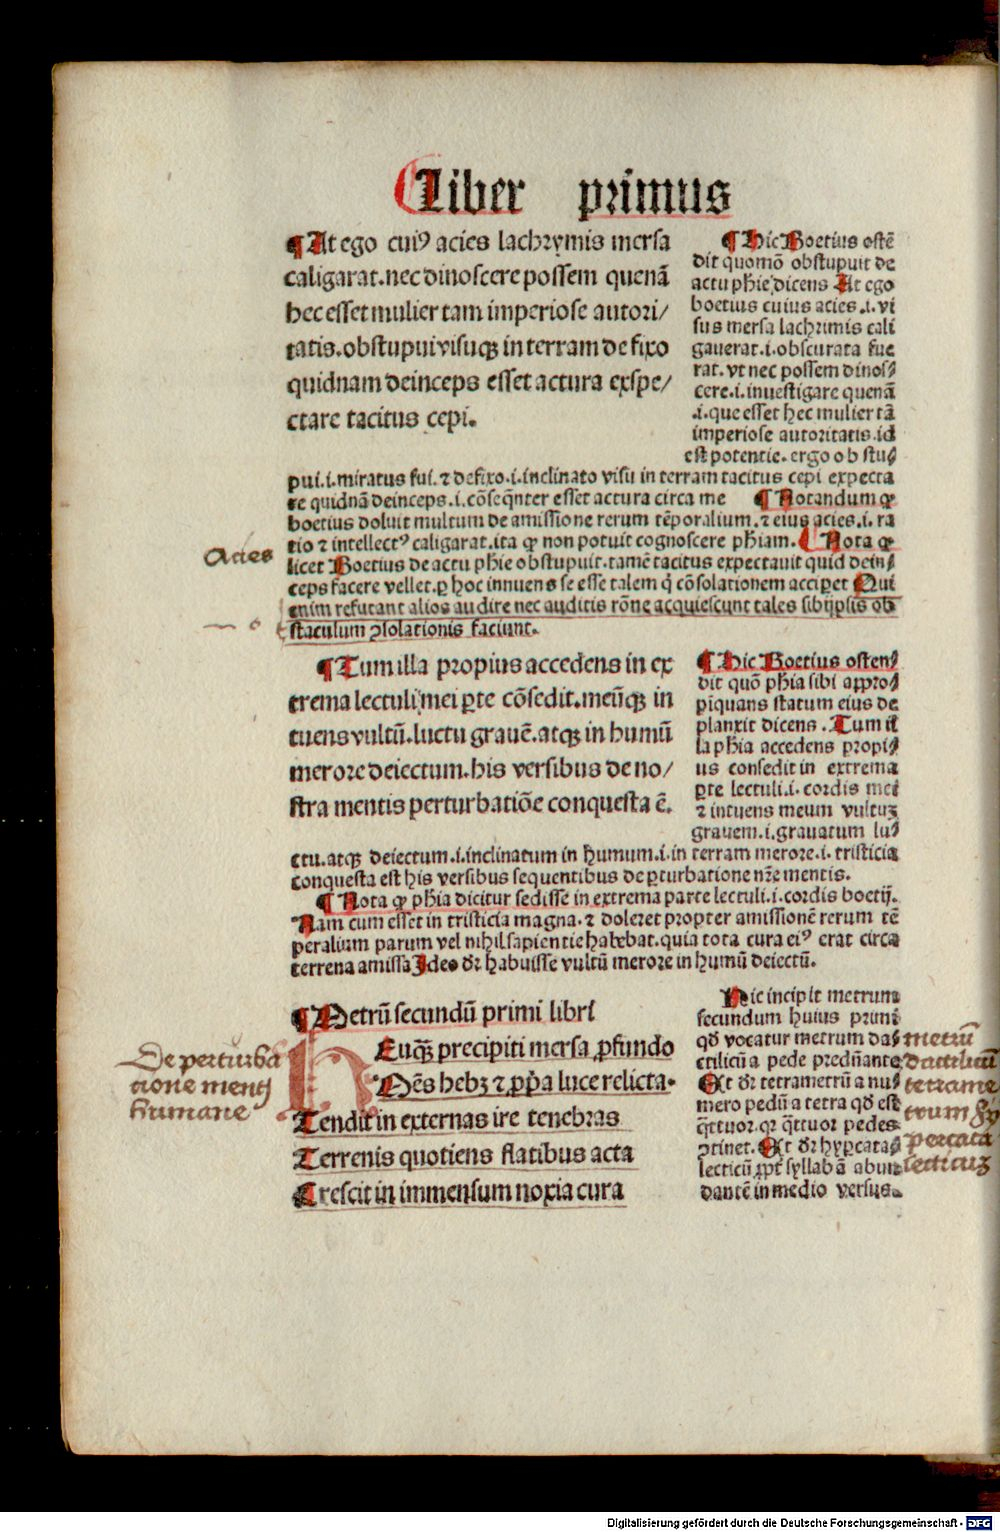 Liber primus
¶ At ego cuiꝰ acies lachrymis mersa
caligarat.nec dinoscere possem quenā
hec esset mulier tam imperiose autori/
tatis.obstupui visuqꝫ in terram defixo
quidnam deinceps esset actura exspe/
ctare tacitus cepi.
¶ Hic Boetius ostē
dit quomō obstupuit de
actu phie dicens At ego
boetius cuius acies.i.vi
sus mersa lachrimis cali
gauerat.i.obscurata fue
rat.vt nec possem dinos/
cere.i.inuestigare quenā
.i.que esset hec mulier tā
imperiose autoritatis.id
est potentie.ergo obstu/
pui.i.miratus fui.⁊ defixo.i.inclinato visu in terram tacitus cepi expecta
re quidnā deinceps.i.cōseq̄nter esset actura circa me ¶ Notandum ꝙ
boetius doluit multum de amissione rerum tēporalium.⁊ eius acies.i.ra
tio ⁊ intellectꝰ caligarat.ita ꝙ non potuit cognoscere phiam. ¶ Nota ꝙ
licet Boetius de actu phie obstupuit.tamē tacitus expectauit quid dein/
ceps facere vellet.ꝑ hoc innuens se esse talem q̇ cōsolationem acciꝑet Qui
enim refutant alios audire nec auditis rōne acquiescunt tales sibijpsis ob
staculum ꝯsolationis faciunt.
Acies
¶ Tum illa propius accedens in ex
trema lectuli mei ꝑte cōsedit.meūqꝫ in
tuens vultū.luctu grauē.atqꝫ in humū
merore deiectum.his versibus de no/
stra mentis perturbatiōe conquesta ē.
¶ Hic Boetius osten/
dit quō phia sibi appro/
pīquans statum eius de
planxit dicens.Tum il
la phia accedens propi/
us consedit in extrema
ꝑte lectuli.i.cordis mei
⁊ intuens meum vultuꝫ
grauem.i.grauatum lu/
ctu.atqꝫ deiectum.i.inclinatum in humum.i.in terram merore.i.tristicia
conquesta est his versibus sequentibus de ꝑturbatione nr̄e mentis.
¶ Nota ꝙ phia dicitur sedisse in extrema parte lectuli.i.cordis boetij.
Nam cum esset in tristicia magna.⁊ doleret propter amissionē rerum tē
peralium parum vel nihil sapientie habebat.quia tota cura eiꝰ erat circa
terrena amissa Ideo dr̄ habuisse vultū merore in humū deiectū.
¶ Metrū secundū primi libri
De perturba
tione mentꝭ
humane
Heuqꝫ precipiti mersa ꝓfundo
Mēs hebꝫ ⁊ ꝓpͥa luce relicta.
Tendit in externas ire tenebras
Terrenis quotiens flatibus acta
Crescit in immensum noxia cura
Hic incipit metrum
secundum huius primi
qd̄ vocatur metrum da/
ctilicū a pede predn̄ante
Et dr̄ tetrametrū a nu/
mero pedū a tetra qd̄ est
q̄ttuor.qr q̄ttuor pedes
ꝯtinet.Et dr̄ hyꝑcata/
lecticū ꝓpt̄ syllabā abun
dantē in medio versus.
metrū
dactilicū
tetrame
trum hy
percata
lecticuꝫ
Digitalisierung gefördert durch die Deutsche Forschungsgemeinschaft - DFG